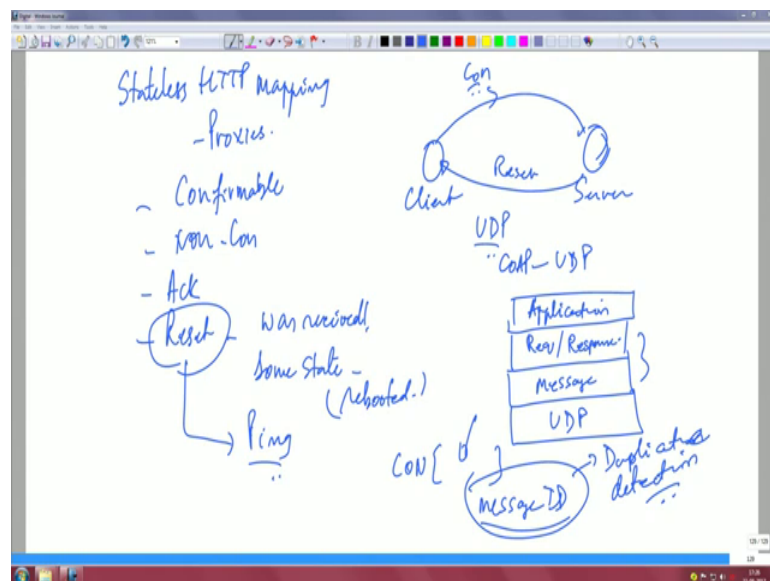 Stateless HTTP Mapping
- Proxies.
- Confirmable
- Non-Con
- Ack
- Reset - was received,
some state -
(rebooted.)
Ping
Con
Client
Reset
Server
UDP
COAP - UDP
Application
Req/Response
Message
UDP
CON {    }
Message ID
Duplicate
detection